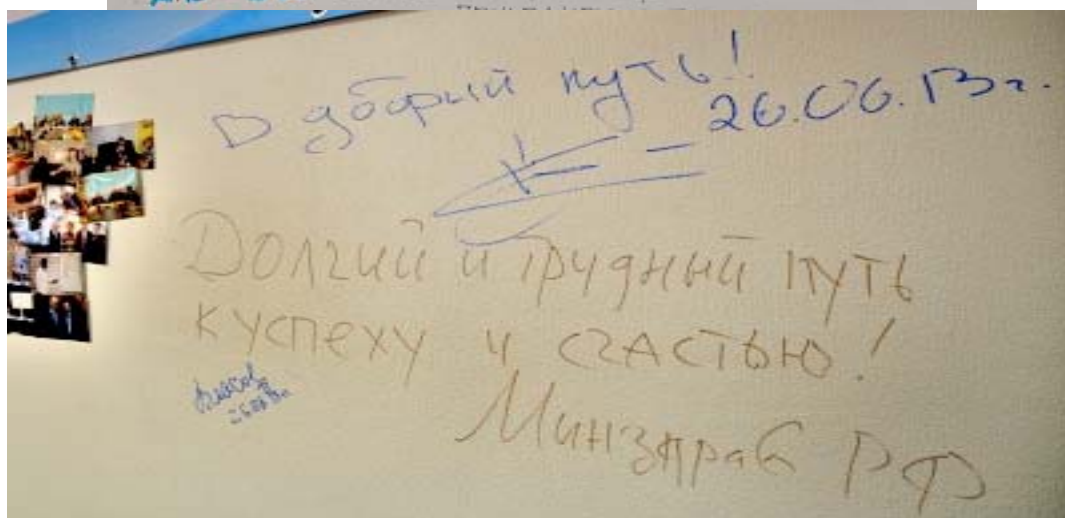 В добрый путь!
26.06.13г.
Долгий и трудный путь
к успеху и счастью!
Минздрав РФ
Власов
26.06.13г